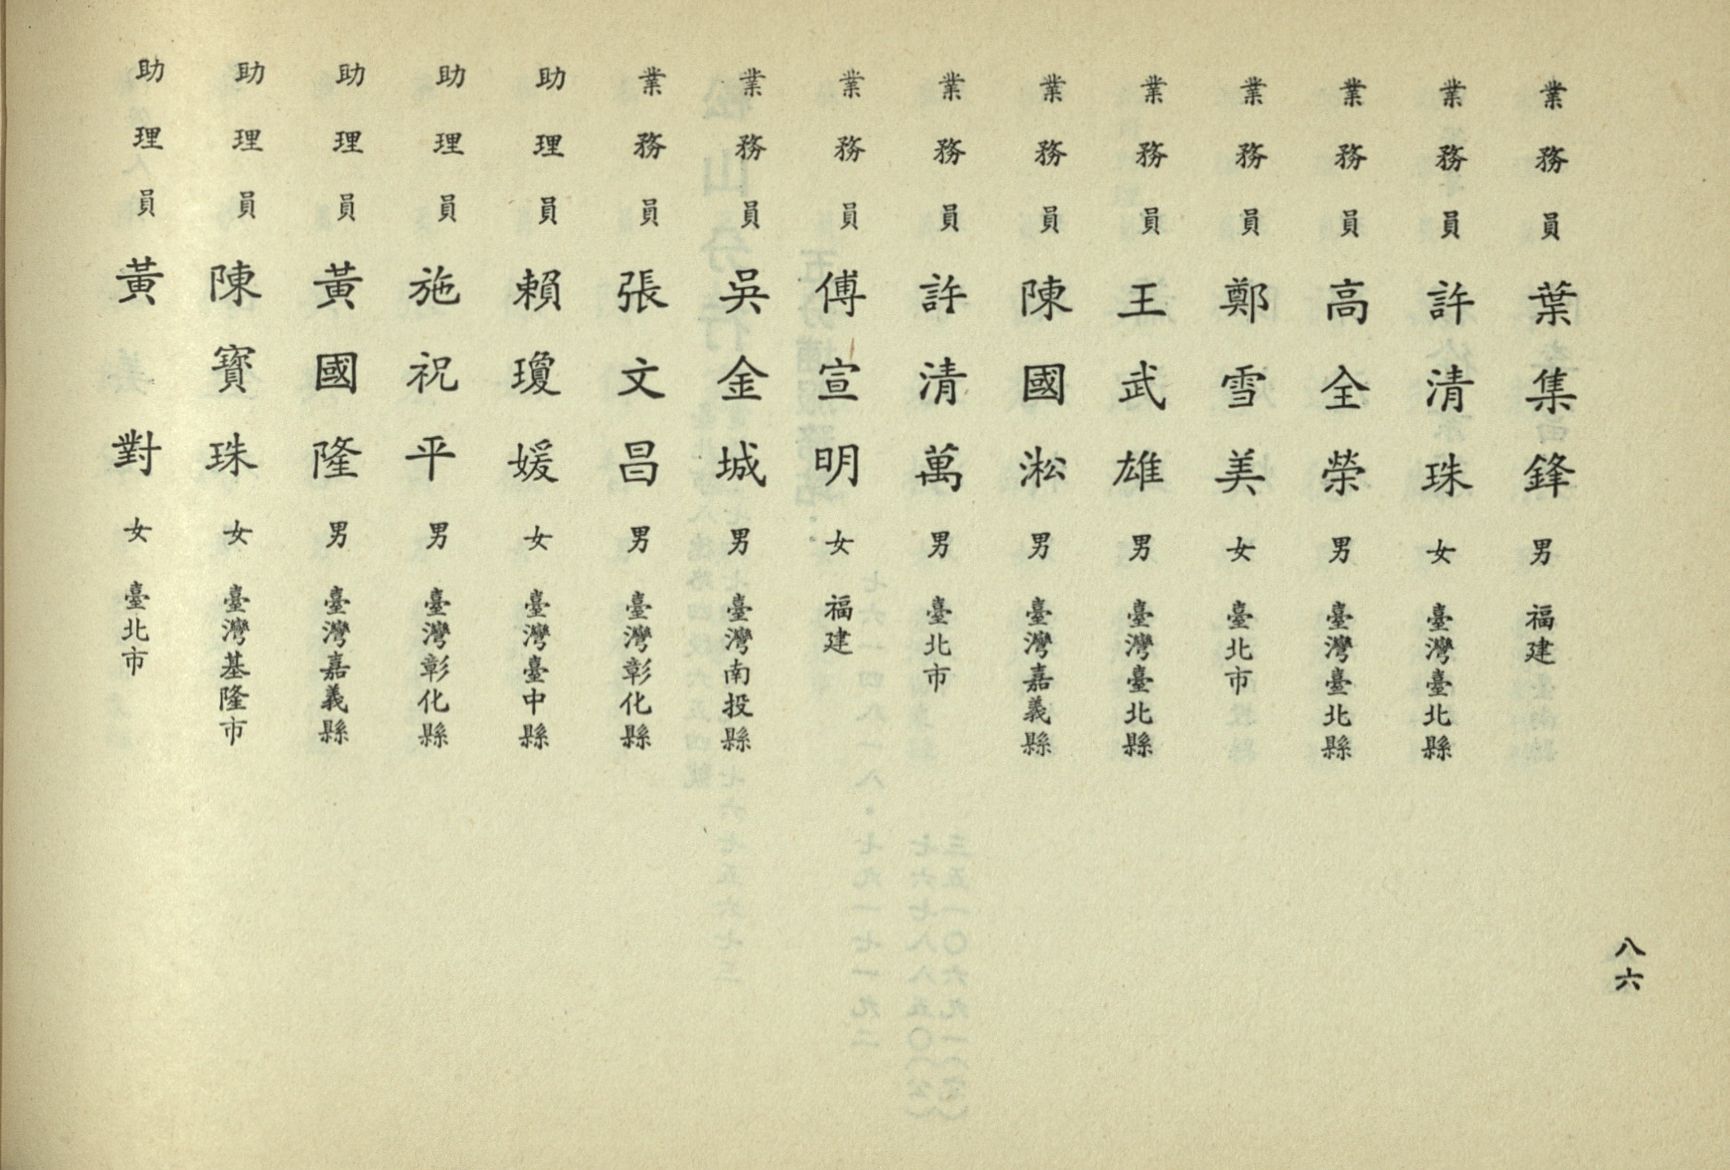 八六
業務員 葉集鋒 男 福建
業務員 許清珠 女 臺灣臺北縣
業務員 高全榮 男 臺灣臺北縣
業務員 鄭雪美 女 臺北市
業務員 王武雄 男 臺灣臺北縣
業務員 陳國淞 男 臺灣嘉義縣
業務員 許清萬 男 臺北市
業務員 傅宣明 女 福建
業務員 吳金城 男 臺灣南投縣
業務員 張文昌 男 臺灣彰化縣
助理員 賴瓊媛 女 臺灣臺中縣
助理員 施祝平 男 臺灣彰化縣
助理員 黃國隆 男 臺灣嘉義縣
助理員 陳寶珠 女 臺灣基隆市
助理員 黃對 女 臺北市